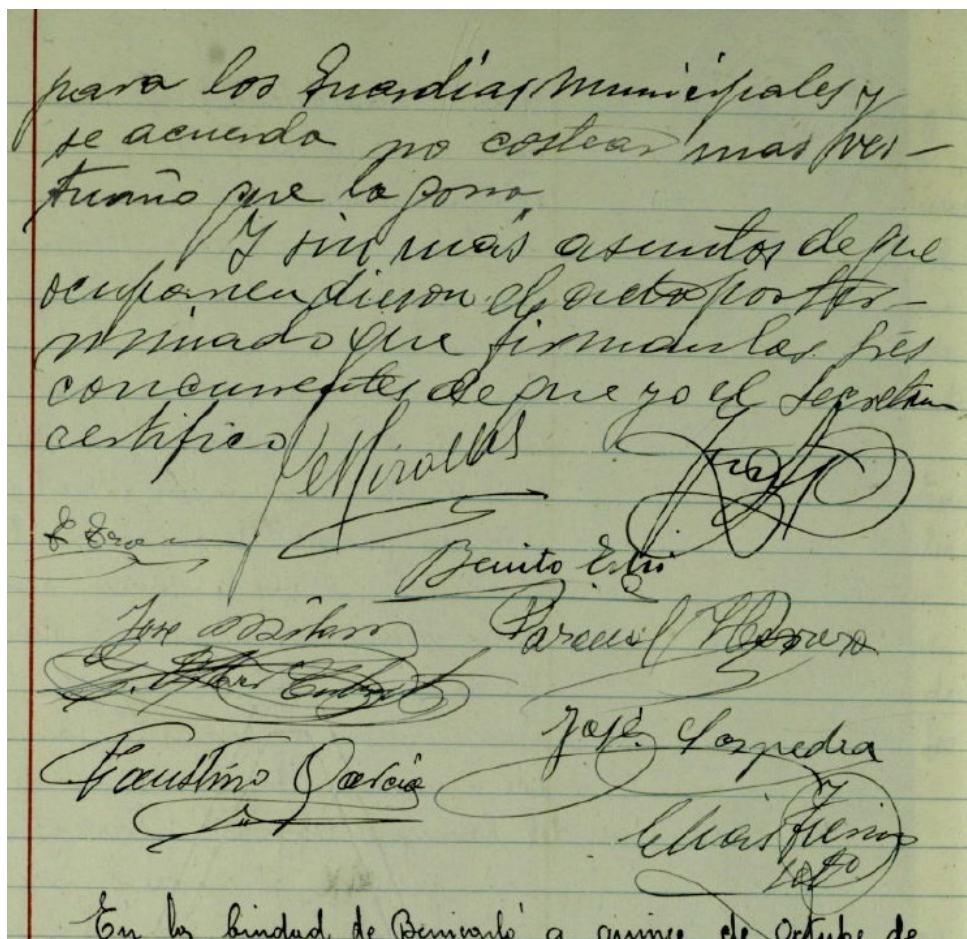 para los Guardias Municipales y
se acuerda no costear mas ves-
tuario que la gorra
Y sin más asuntos de que
ocuparse dieron el acto por ter-
minado que firman los Sres
concurrentes de que yo el Secretario
certifico
Benito
José
Pascual Herrera
José Cospedra
Faustino García
Elias
En la Ciudad de Benicarló a quince de Octubre de